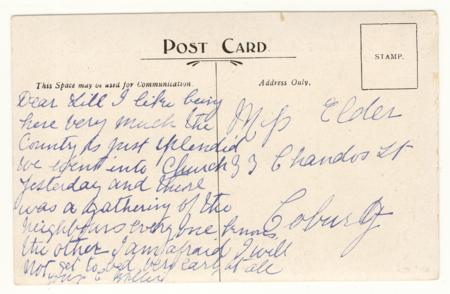 POST CARD.
STAMP.
This Space may be used for Communication.
Address Only.
Dear Lill I like being
here very much the
County is just splendid
we went into Church
yesterday and there
was a gathering of the
neighbours every one knows
the other I am afraid I will
not get to bed very early at all
Elder
Chandos St
Coburg